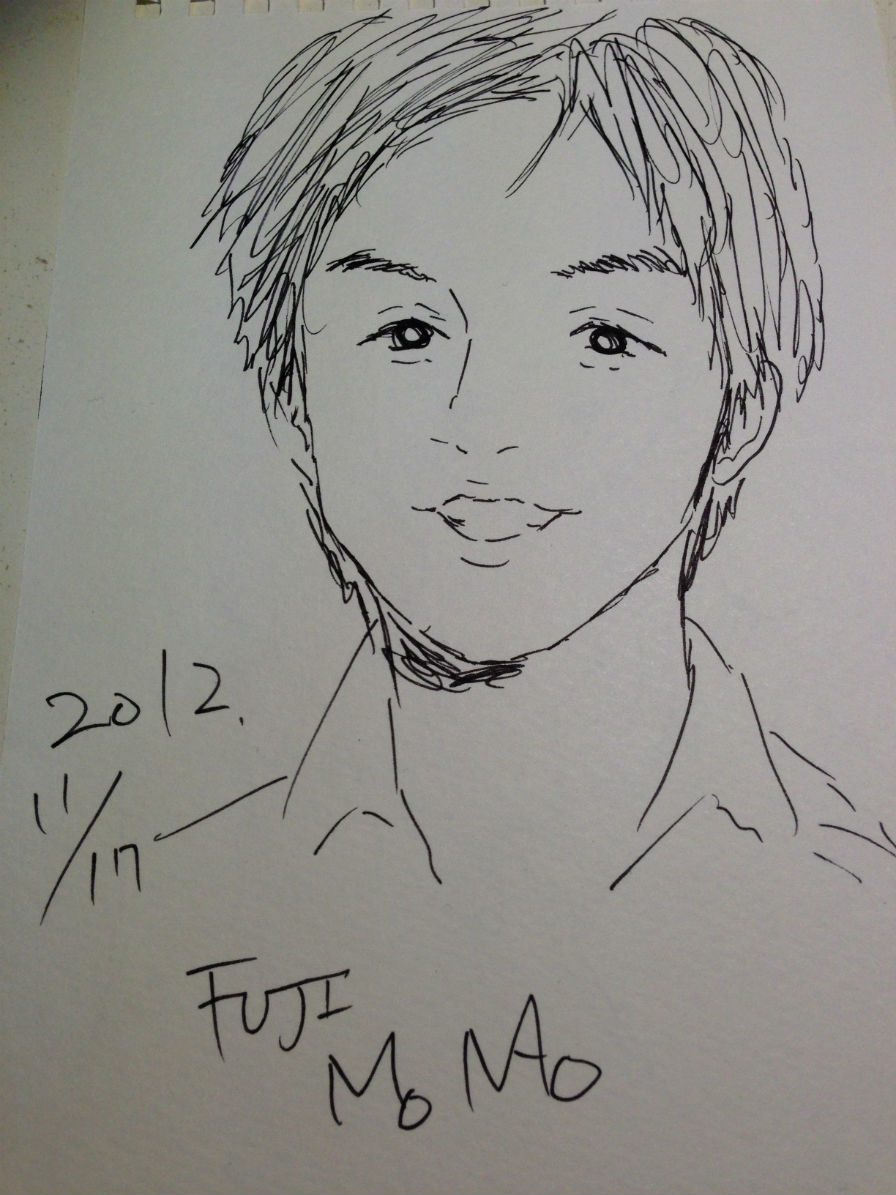 2012.
11/17
FUJI
MoNAo